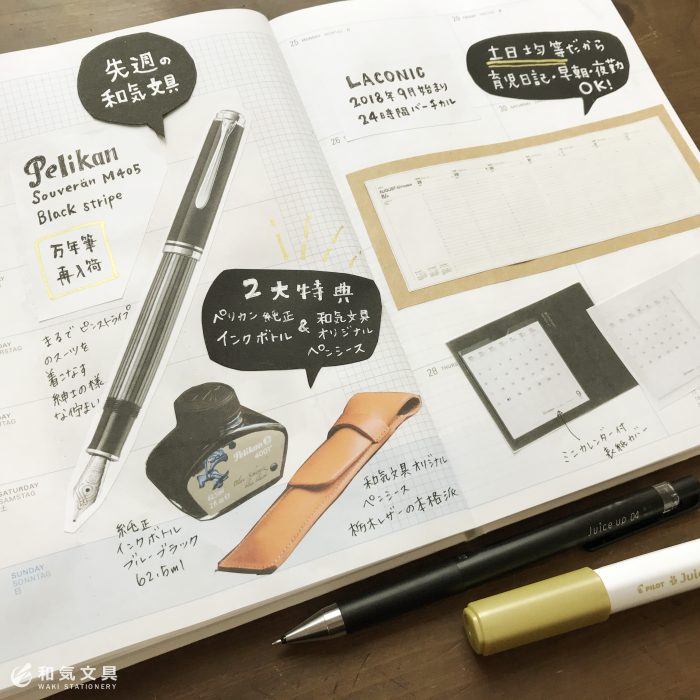 先週の
和気文具
Pelikan
Souverän M405
Black stripe
万年筆
再入荷
まるでピンストライプ
のスーツを
着こなす
紳士の様
な佇まい
2大特典
ペリカン純正
インクボトル
&
和気文具
オリジナル
ペンシース
Pelikan
4001
純正
インクボトル
ブルーブラック
62.5ml
和気文具オリジナル
ペンシース
栃木レザーの本格派
SATURDAY
SAMSTAG
土
SUNDAY
SONNTAG
日
25 MONDAY
LACONIC
2018年9月始まり
24時間バーチカル
土日均等だから
育児日記・早朝・夜勤
OK!
26
AUGUST
28 THURS
9
ミニカレンダー付
表紙カバー
Juice up 04
PILOT Juice
和気文具
WAKI STATIONERY